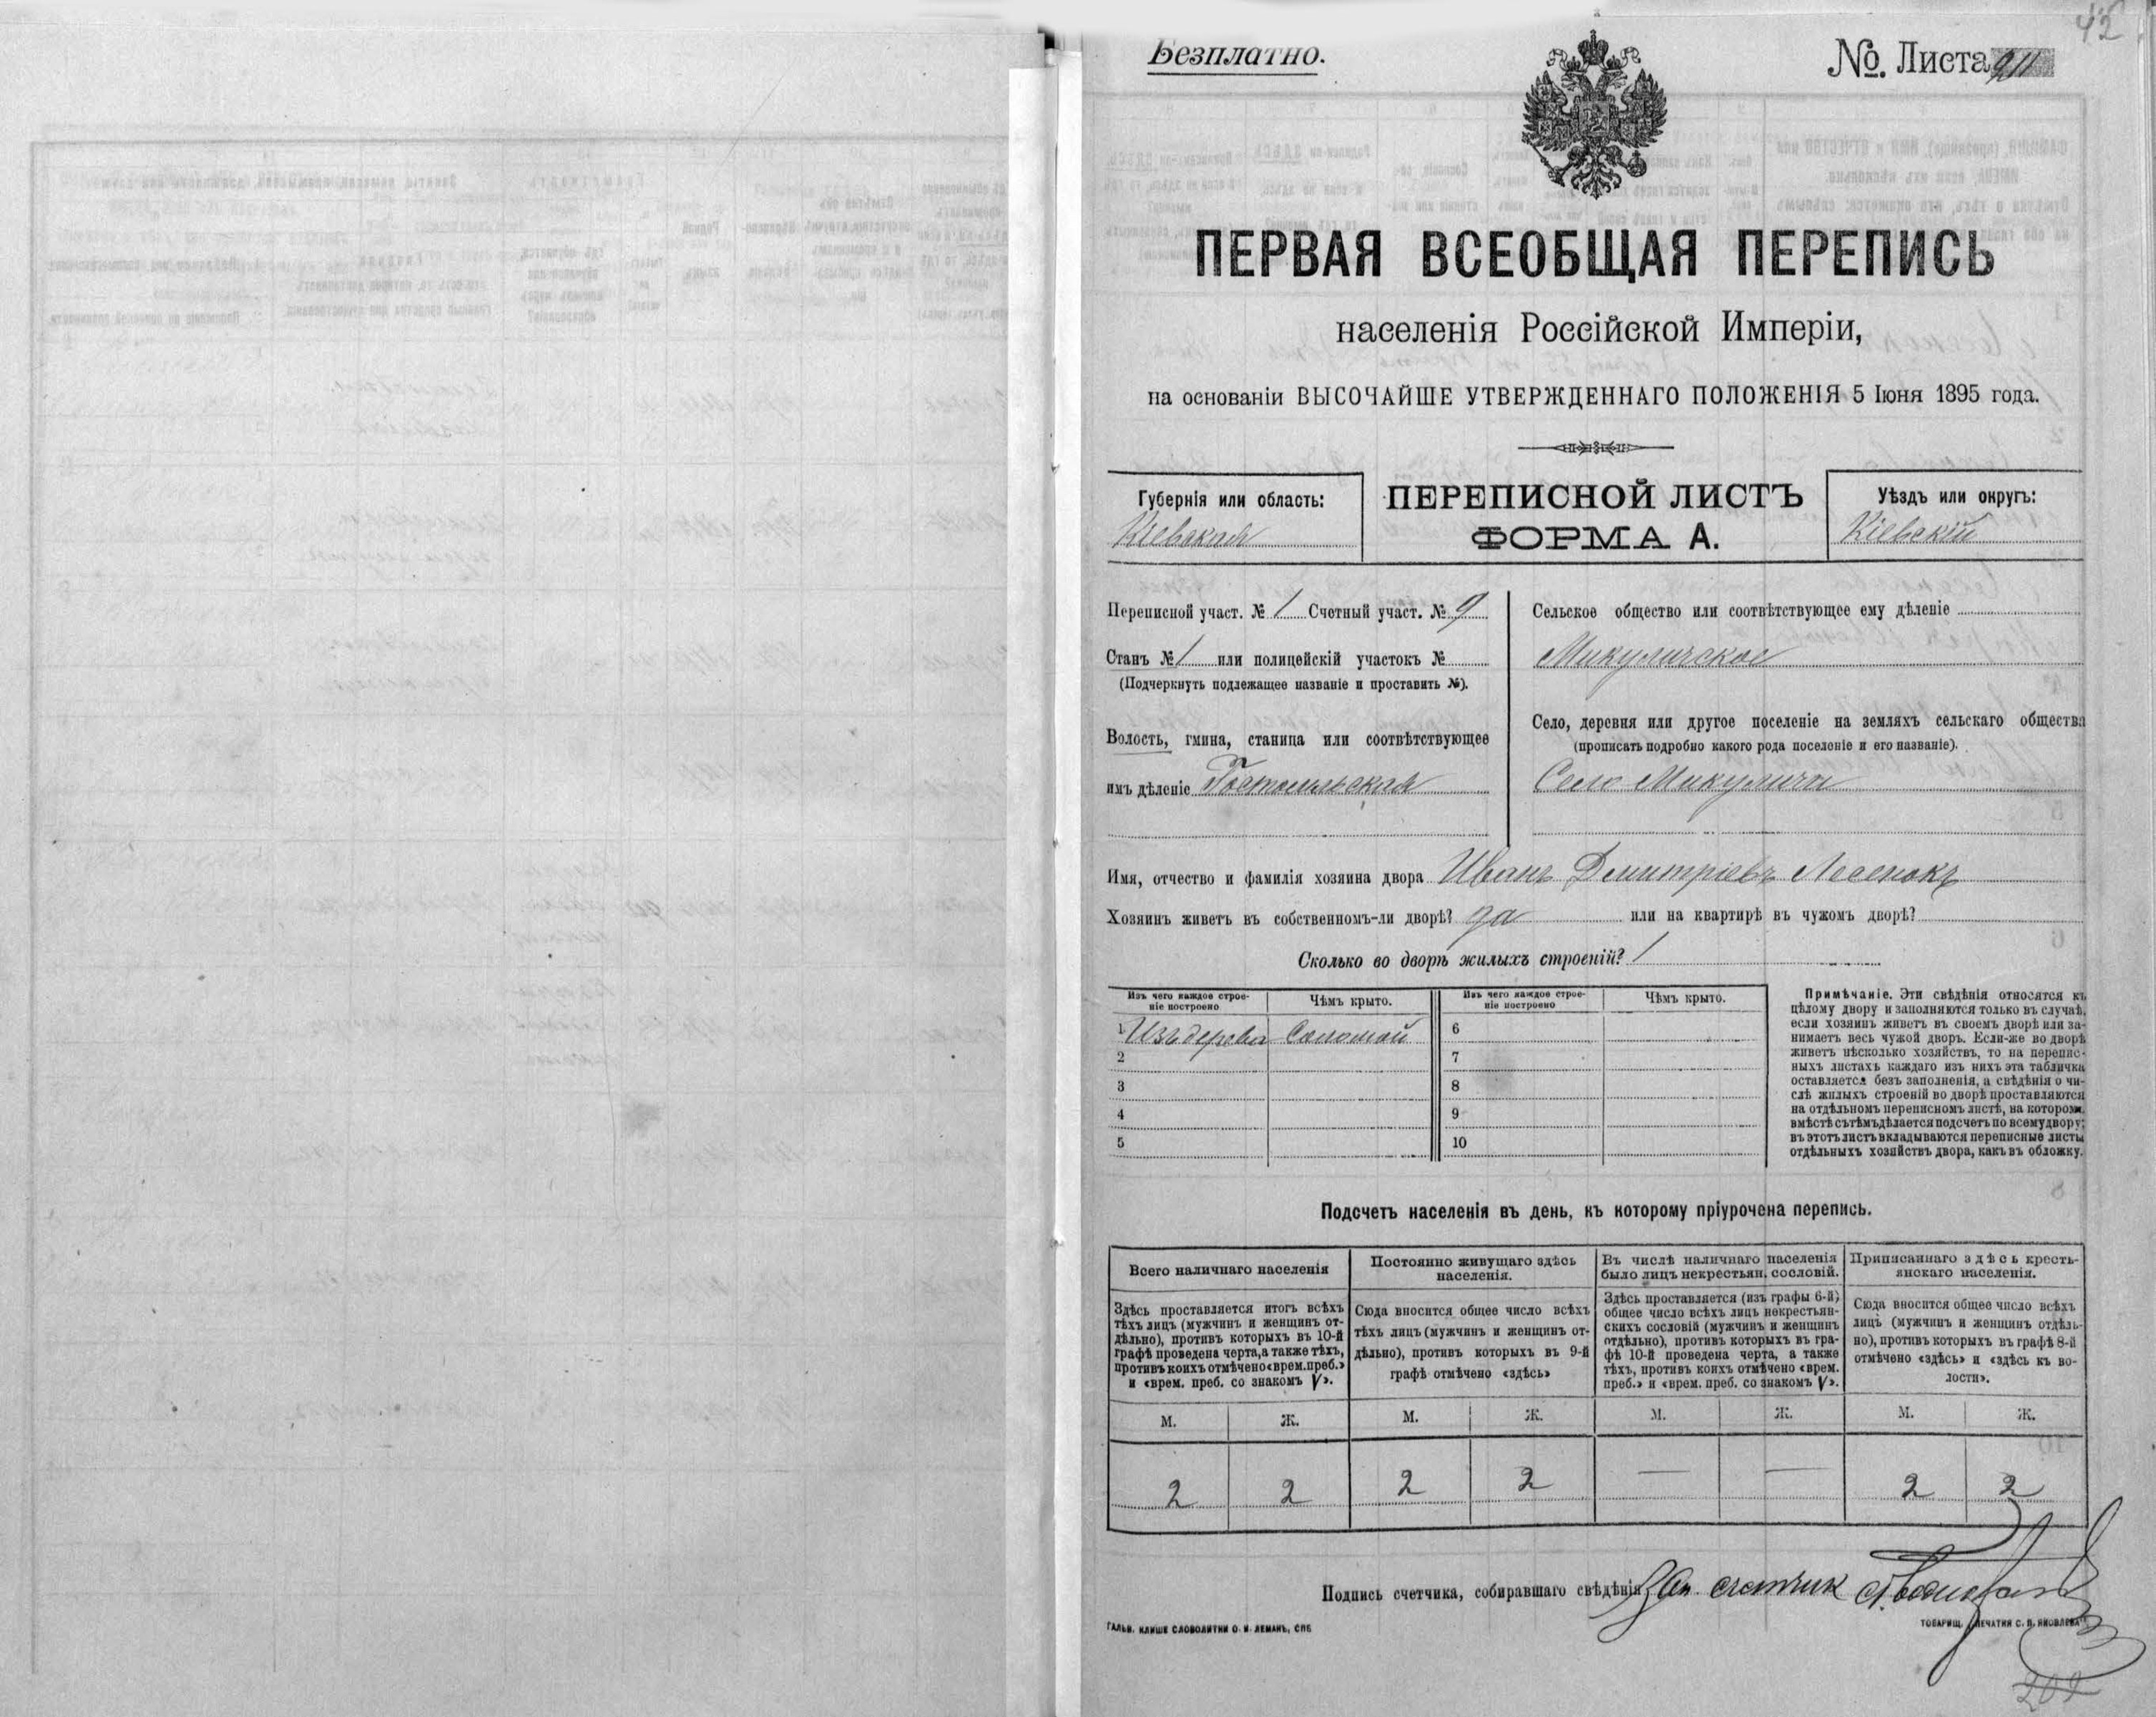 45
Безплатно.
№. Листа 211
ПЕРВАЯ ВСЕОБЩАЯ ПЕРЕПИСЬ
населенія Россійской Имперіи,
на основаніи ВЫСОЧАЙШЕ УТВЕРЖДЕННАГО ПОЛОЖЕНІЯ 5 Іюня 1895 года.
Губернія или область:
Кіевская
ПЕРЕПИСНОЙ ЛИСТЪ
ФОРМА А.
Уѣздъ или округъ:
Кіевскій
Переписной участ. № 1 Счетный участ. № 9
Станъ № 1 или полицейскій участокъ №
(Подчеркнуть подлежащее названіе и проставить №).
Волость, гмина, станица или соотвѣтствующее
имъ дѣленіе Гостомльская
Сельское общество или соотвѣтствующее ему дѣленіе
Микуличское
Село, деревня или другое поселеніе на земляхъ сельскаго общества
(прописать подробно какого рода поселеніе и его названіе).
Село Микуличи
Имя, отчество и фамилія хозяина двора Иванъ Дмитріевъ Лесенокъ
Хозяинъ живетъ въ собственномъ-ли дворѣ? да или на квартирѣ въ чужомъ дворѣ?
Сколько во дворѣ жилыхъ строеній? 1
Изъ чего каждое строе-
ніе построено
Чѣмъ крыто.
Изъ чего каждое строе-
ніе построено
Чѣмъ крыто.
1 Изъ дерева Соломой
2
3
4
5
6
7
8
9
10
Примѣчаніе. Эти свѣдѣнія относятся къ
цѣлому двору и заполняются только въ случаѣ,
если хозяинъ живетъ въ своемъ дворѣ или за-
нимаетъ весь чужой дворъ. Если-же во дворѣ
живетъ нѣсколько хозяйствъ, то на перепис-
ныхъ листахъ каждаго изъ нихъ эта табличка
оставляется безъ заполненія, а свѣдѣнія о чи-
слѣ жилыхъ строеній во дворѣ проставляются
на отдѣльномъ переписномъ листѣ, на которомъ
вмѣстѣ съ тѣмъ дѣлается подсчетъ по всему двору;
въ этотъ листъ вкладываются переписные листы
отдѣльныхъ хозяйствъ двора, какъ въ обложку.
Подсчетъ населенія въ день, къ которому пріурочена перепись.
Всего наличнаго населенія
Здѣсь проставляется итогъ всѣхъ
тѣхъ лицъ (мужчинъ и женщинъ от-
дѣльно), противъ которыхъ въ 10-й
графѣ проведена черта, а также тѣхъ,
противъ коихъ отмѣчено «врем. преб.»
и «врем. преб. со знакомъ V».
Постоянно живущаго здѣсь
населенія.
Сюда вносится общее число всѣхъ
тѣхъ лицъ (мужчинъ и женщинъ от-
дѣльно), противъ которыхъ въ 9-й
графѣ отмѣчено «здѣсь»
Въ числѣ наличнаго населенія
было лицъ некрестьян. сословій.
Здѣсь проставляется (изъ графы 6-й)
общее число всѣхъ лицъ некрестьян-
скихъ сословій (мужчинъ и женщинъ
отдѣльно), противъ которыхъ въ гра-
фѣ 10-й проведена черта, а также
тѣхъ, противъ коихъ отмѣчено «врем.
преб.» и «врем. преб. со знакомъ V».
Приписаннаго здѣсь кресть-
янскаго населенія.
Сюда вносится общее число всѣхъ
лицъ (мужчинъ и женщинъ отдѣль-
но), противъ которыхъ въ графѣ 8-й
отмѣчено «здѣсь» и «здѣсь къ во-
лости».
М. Ж. М. Ж. М. Ж. М. Ж.
2 2 2 2 — — 2 2
Подпись счетчика, собиравшаго свѣдѣнія счетчик
ГАЛЬВ. КЛИШЕ СЛОВОЛИТНИ О. И. ЛЕМАНЪ, СПБ
ТОВАРИЩ. ПЕЧАТНЯ С. П. ЯКОВЛЕВА
202